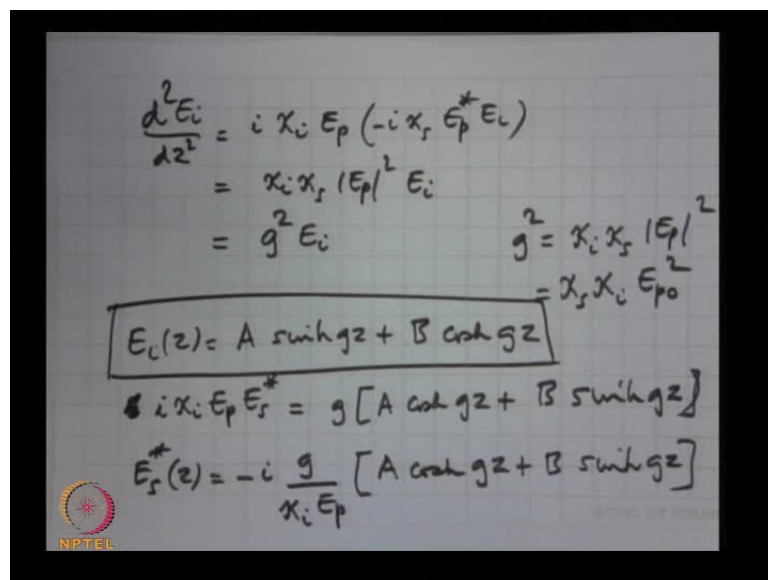 d²Eᵢ/dz² = i χᵢ Eₚ (-i χₛ Eₚ* Eᵢ)
= χᵢ χₛ |Eₚ|² Eᵢ
= g² Eᵢ g² = χᵢ χₛ |Eₚ|²
= χₛ χᵢ Eₚ₀²
Eᵢ(z) = A sinh gz + B cosh gz
i χᵢ Eₚ Eₛ* = g [A cosh gz + B sinh gz]
Eₛ*(z) = -i g/(χᵢ Eₚ) [A cosh gz + B sinh gz]
NPTEL